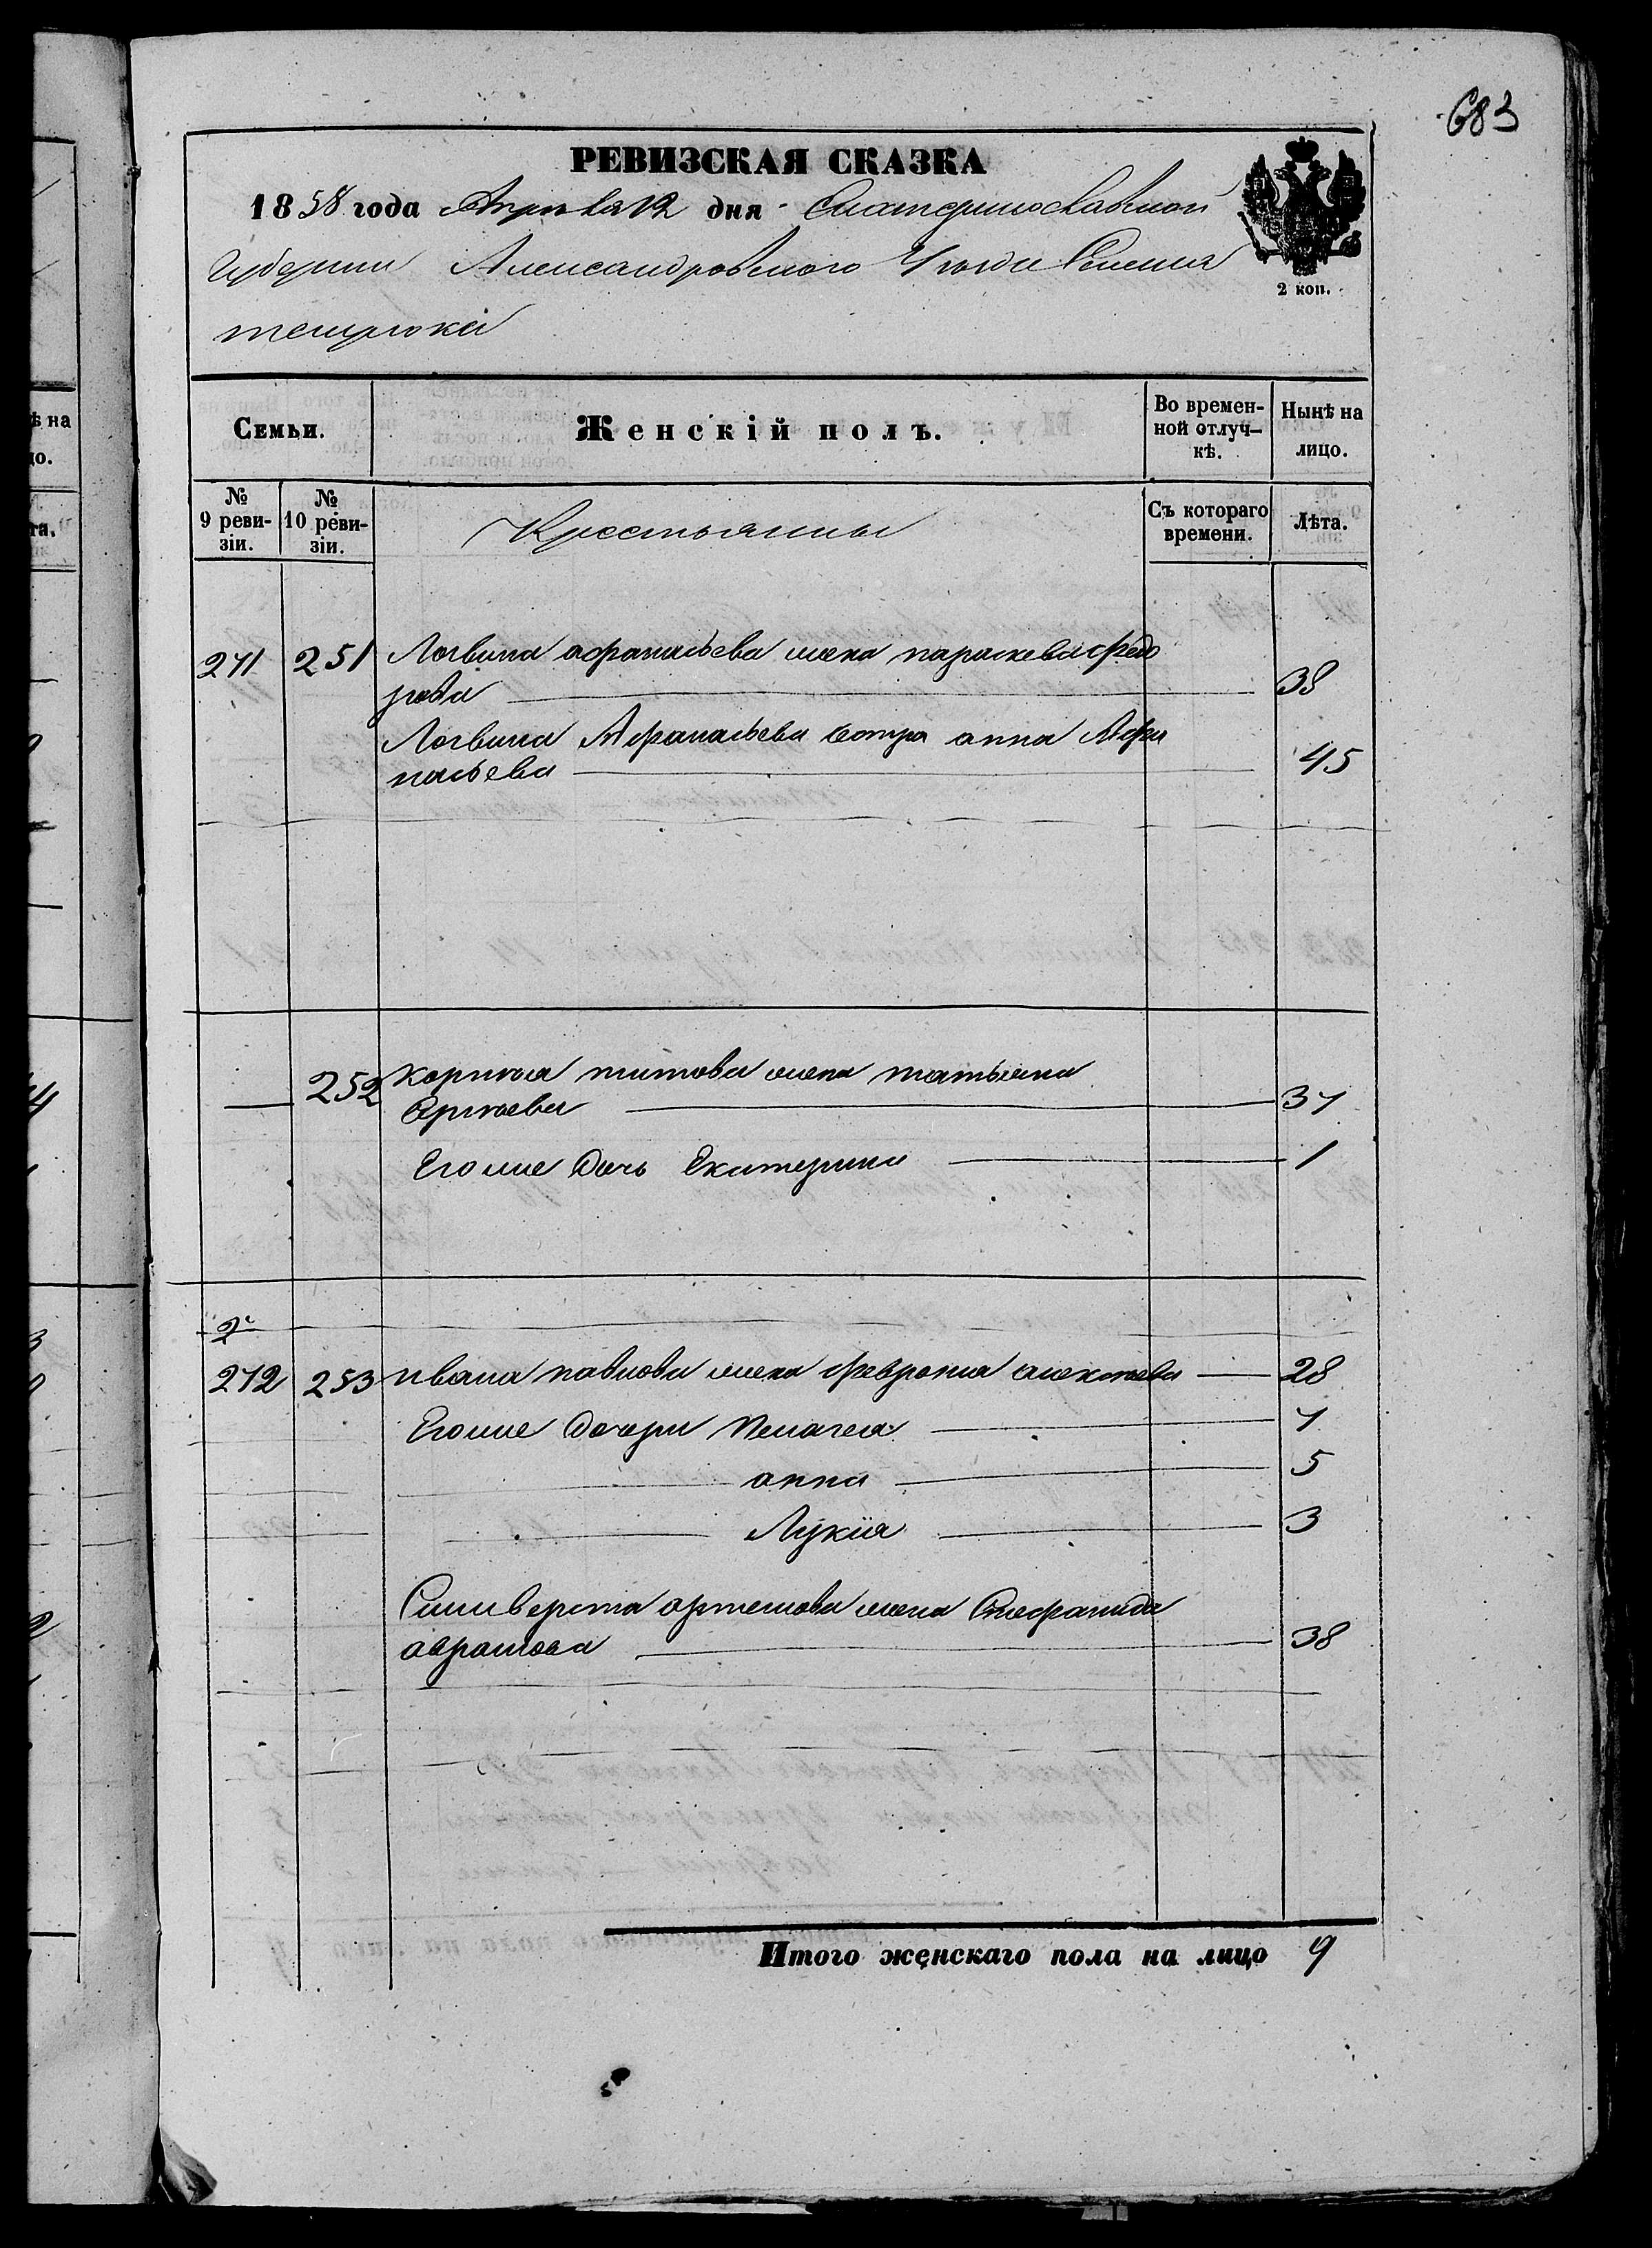 683
РЕВИЗСКАЯ СКАЗКА
1858 года Апреля 12 дня Екатеринославской
Губернии Александровского Уезда Селения
темрюка
2 коп.
Семьи.
Женскій полъ.
Во времен-
ной отлуч-
кѣ.
Нынѣ на
лицо.
№
9 реви-
зіи.
№
10 реви-
зіи.
Крестьянины
Съ котораго
времени.
Лѣта.
271 251 Логвина афанасьева жена параскева федо
рова 38
Логвина Афанасьева сестра анна Афа
насьева 45
252 корнея титова жена татьяна
Сергеева 37
Егоже Дочь Екатерина 1
2
272 253 ивана павлова жена феврония алексеева 28
Егоже Дочери Пелагея 7
анна 5
Лукія 3
Силиверста артемова жена Стефанида
аврамова 38
Итого женскаго пола на лицо 9
ѣ на
цо.
та.